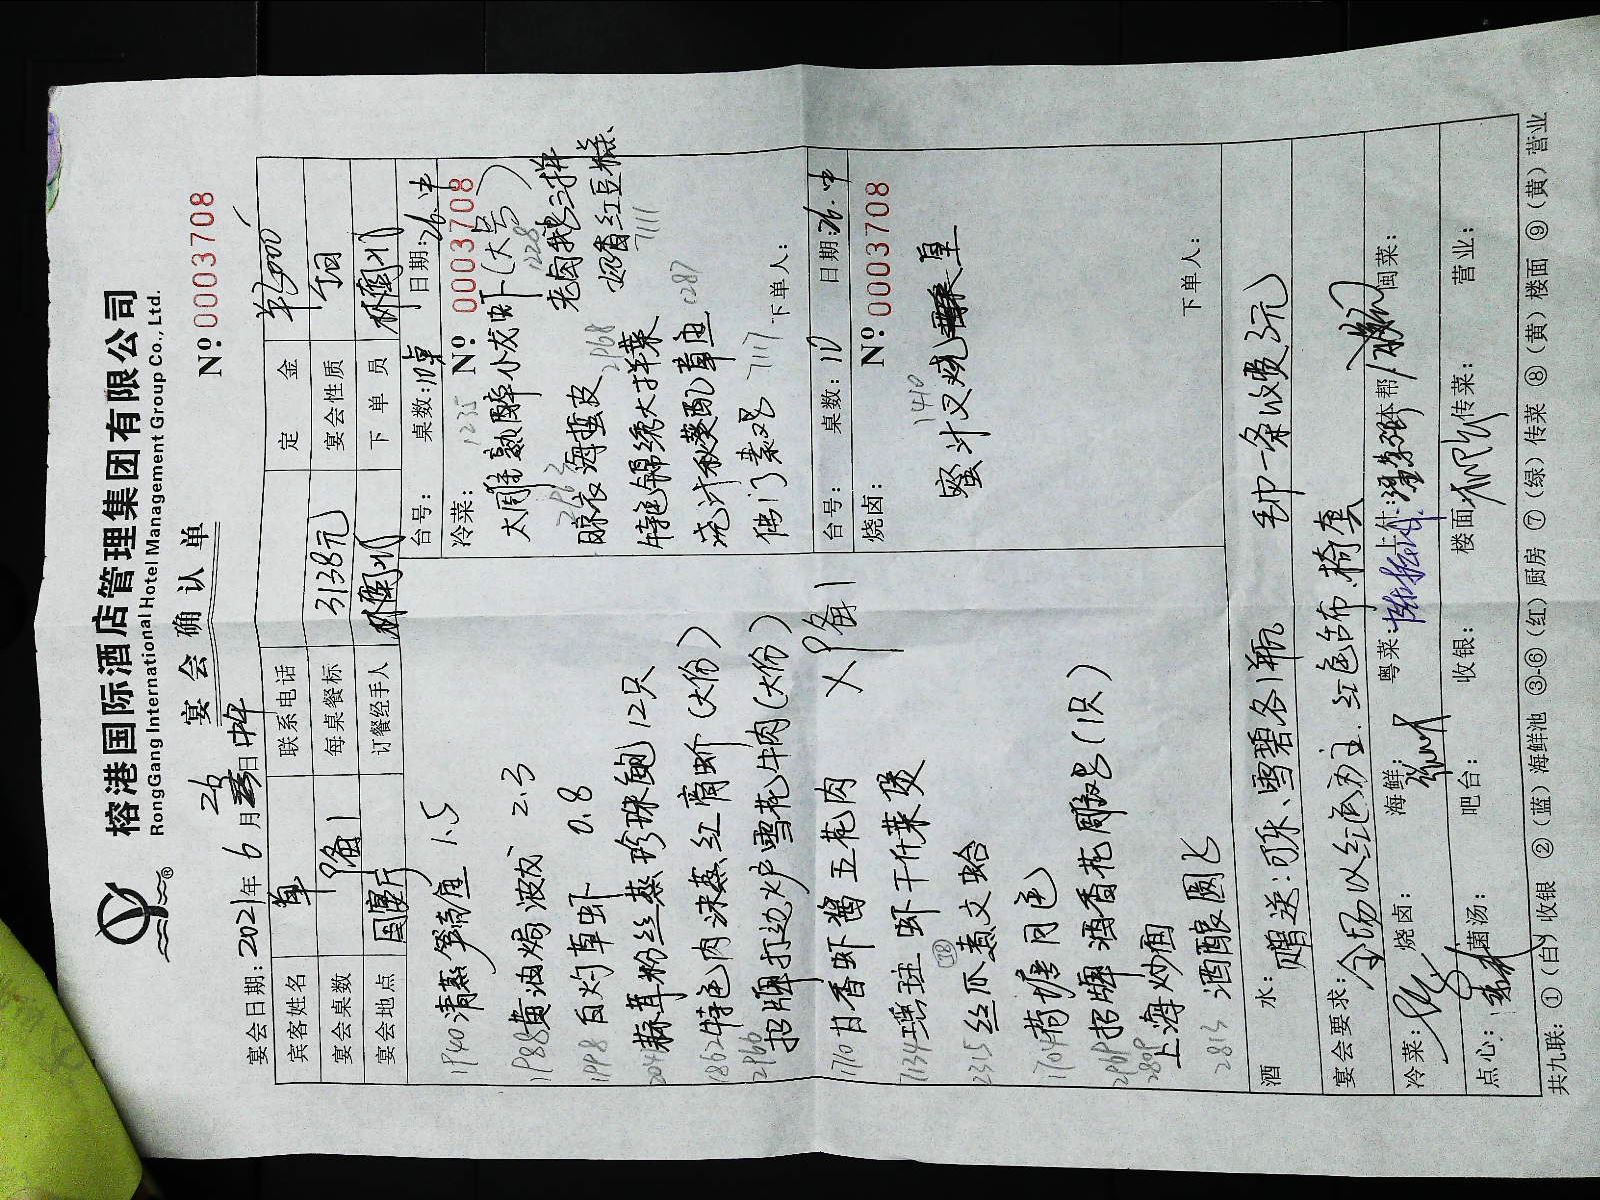 榕港国际酒店管理集团有限公司
RongGang International Hotel Management Group Co., Ltd.
宴会确认单
Nº 0003708
宴会日期: 2021年 6月 26日 中午
宾客姓名 联系电话 定金
宴会桌数 每桌餐标 3138元 宴会性质
宴会地点 国宴厅 订餐经手人 下单员
1940 清蒸笋壳鱼 1.5
1988 黄油焗波龙 2.3
1998 白灼草虾 0.8
蒜茸粉丝蒸珍珠鲍 12只
1862 特色肉沫蒸红膏蚧(大份)
2966 招牌打边炉雪花牛肉(大份)
1710 甘香虾酱五花肉
瑶柱虾干什菜煲
2315 丝瓜煮文蛤
1704 荷塘月色
2969 招牌酒香花雕鸡(1只)
2809 上海炒面
2813 酒酿圆子
台号: 桌数: 10桌 日期: 26.中
冷菜: Nº 0003708
1235 1228
太雕熟醉小龙虾(大号)
2968
凉衣海蜇皮 老卤鹅三拼
特色锦绣大拌菜 奶香红豆糕
7111
浇汁秋葵配章鱼 1287
佛门素鸡 7117
下单人:
台号: 桌数: 10 日期: 26.中
烧卤: Nº 0003708
1410
蜜汁叉烧
下单人:
酒水: 赠送:可乐、雪碧各1瓶 毛巾一条收费3元
宴会要求: 全场以红色为主.红色台布.椅套
冷菜: 烧卤: 海鲜: 粤菜: 上什: 本帮: 闽菜:
点心: 菌汤: 吧台: 收银: 楼面: 传菜: 营业:
共九联: ①(白)收银 ②(蓝)海鲜池 ③-⑥(红)厨房 ⑦(绿)传菜 ⑧(黄)楼面 ⑨(黄)营业